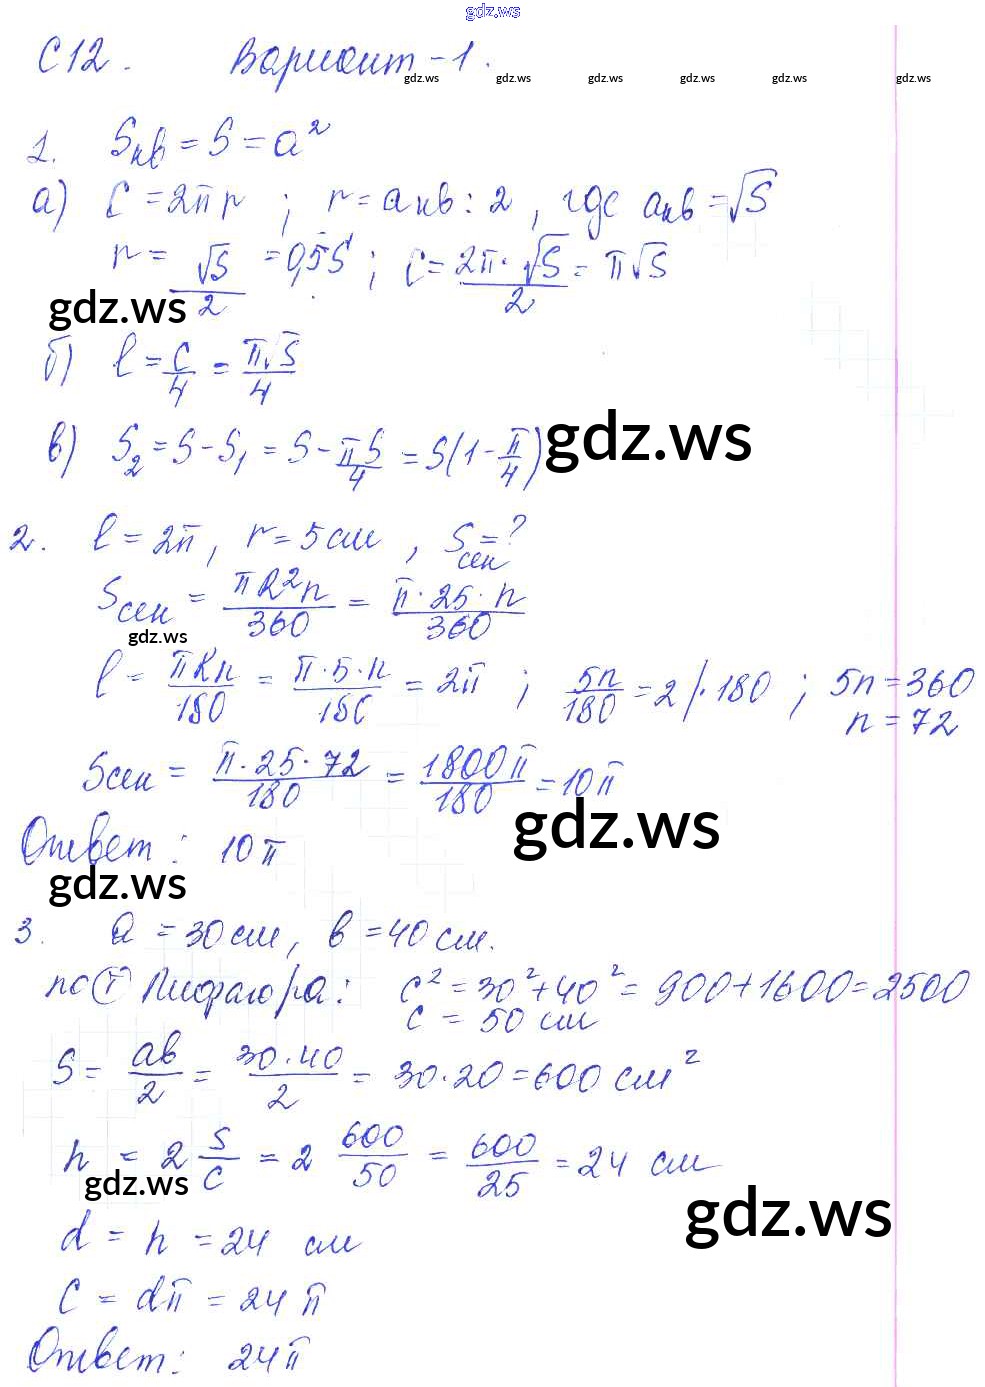 gdz.ws
С12. Вариант-1.
gdz.ws gdz.ws gdz.ws gdz.ws gdz.ws gdz.ws
1. Sкв = S = a²
а) C = 2πr ; r = aкв : 2 , где aкв = √S
r = √S/2 = 0,5S ; C = 2π·√S/2 = π√S
gdz.ws
б) l = C/4 = π√S/4
в) S₂ = S - S₁ = S - πS/4 = S(1 - π/4)
gdz.ws
2. l = 2π, r = 5 см , Sсек = ?
Sсек = πR²n/360 = π·25·n/360
gdz.ws
l = πRn/180 = π·5·n/180 = 2π ; 5n/180 = 2 /·180 ; 5n = 360
n = 72
Sсек = π·25·72/180 = 1800π/180 = 10π
gdz.ws
Ответ: 10π
gdz.ws
3. a = 30 см, в = 40 см.
по Т Пифагора: c² = 30² + 40² = 900 + 1600 = 2500
c = 50 см
S = aв/2 = 30·40/2 = 30·20 = 600 см²
h = 2 S/C = 2 600/50 = 600/25 = 24 см
gdz.ws
gdz.ws
d = h = 24 см
C = dπ = 24π
Ответ: 24π